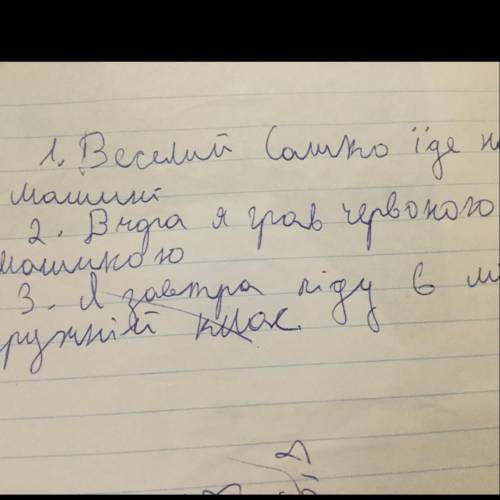 1. Веселий Сашко їде н
машині
2. Вчора я грав червоною
машинкою
3. Я завтра піду в мі
ружній клас.